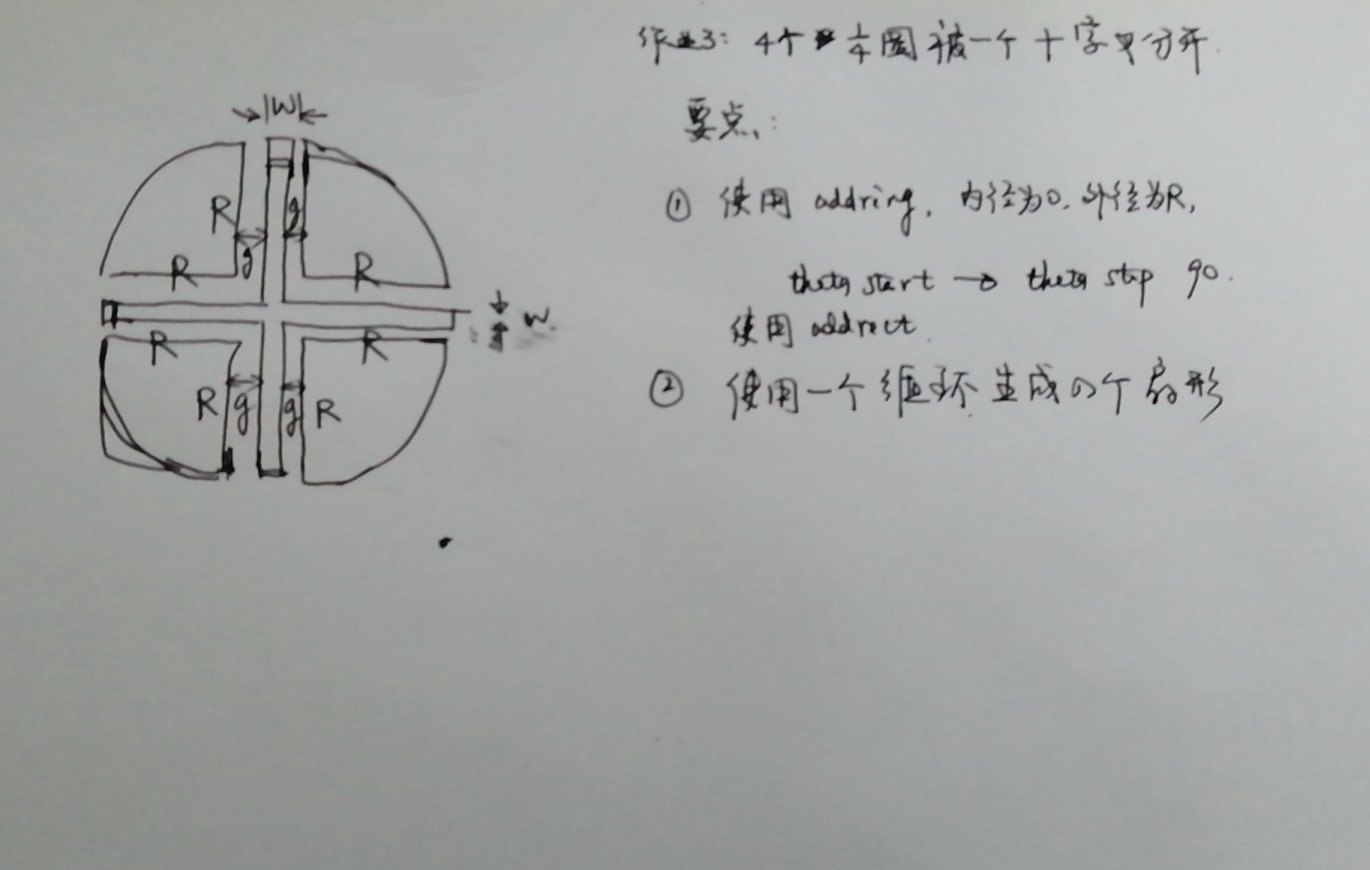 W
R
g
g
R
R
w
R
R
R
g
g
R
3: 4个 1/4圆被一个十字叉分开.
要点:
① 使用 addring, 内径为0, 外径为R,
theta start → theta stop 90.
使用 addrect.
② 使用一个循环生成4个扇形